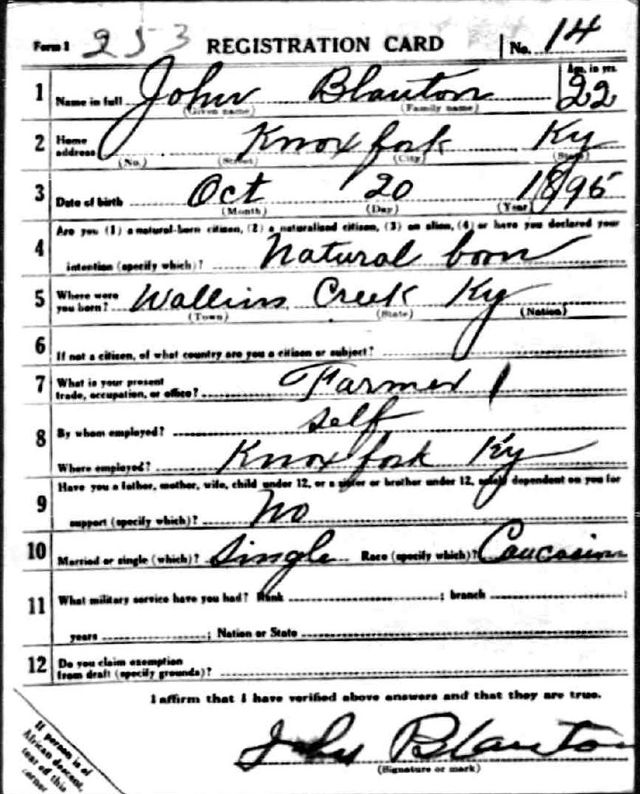 Form 1 253 REGISTRATION CARD No. 14
1 Name in full John Blanton Age, in yrs. 22
(Given name) (Family name)
2 Home address Knox fork Ky
(No.) (Street) (City) (State)
3 Date of birth Oct 20 1895
(Month) (Day) (Year)
4 Are you (1) a natural-born citizen, (2) a naturalized citizen, (3) an alien, (4) or have you declared your
intention (specify which)? Natural born
5 Where were you born? Wallins Creek Ky
(Town) (State) (Nation)
6 If not a citizen, of what country are you a citizen or subject?
7 What is your present trade, occupation, or office? Farmer 1
8 By whom employed? self
Where employed? Knox fork Ky
9 Have you a father, mother, wife, child under 12, or a sister or brother under 12, solely dependent on you for
support (specify which)? No
10 Married or single (which)? Single Race (specify which)? Caucasian
11 What military service have you had? Rank ; branch ;
years ; Nation or State
12 Do you claim exemption
from draft (specify grounds)?
I affirm that I have verified above answers and that they are true.
John Blanton
(Signature or mark)
If person is of
African descent,
tear off this
corner